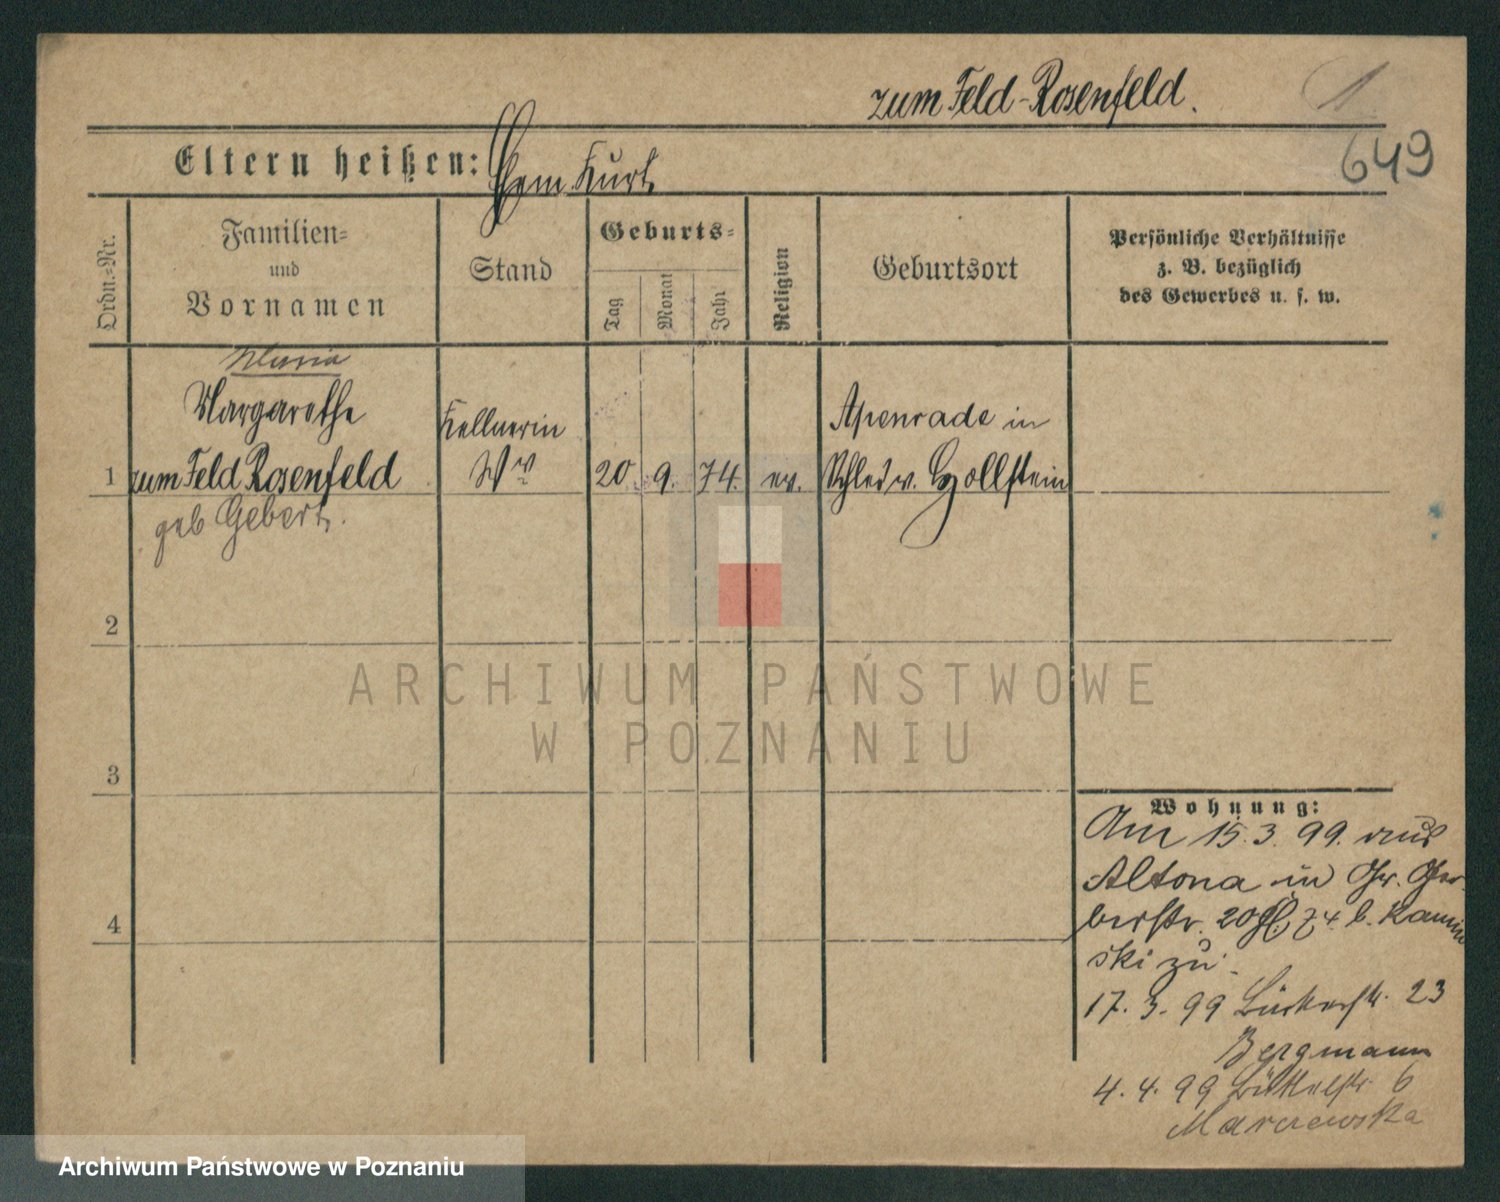 zum Feld-Rosenfeld.
1
649
Eltern heißen: Hem Kurt
Ordn.-Nr.
Familien-
und
Vornamen
Stand
Geburts-
Tag
Monat
Jahr
Religion
Geburtsort
Persönliche Verhältnisse
z. B. bezüglich
des Gewerbes u. s. w.
Maria
Margarethe
1 zum Feld Rosenfeld
geb Gebert.
Kellnerin
Ww
20 9. 74. ev.
Apenrade in
Schlesw. Hollstein
2
3
4
Wohnung:
Am 15.3.99. aus
Altona in Gr. Ger-
berstr. 20 74 b. Kamin
ski zu.
17.3.99 23
Bergmann
4.4.99 Büttelstr 6
ARCHIWUM PAŃSTWOWE
W POZNANIU
Archiwum Państwowe w Poznaniu